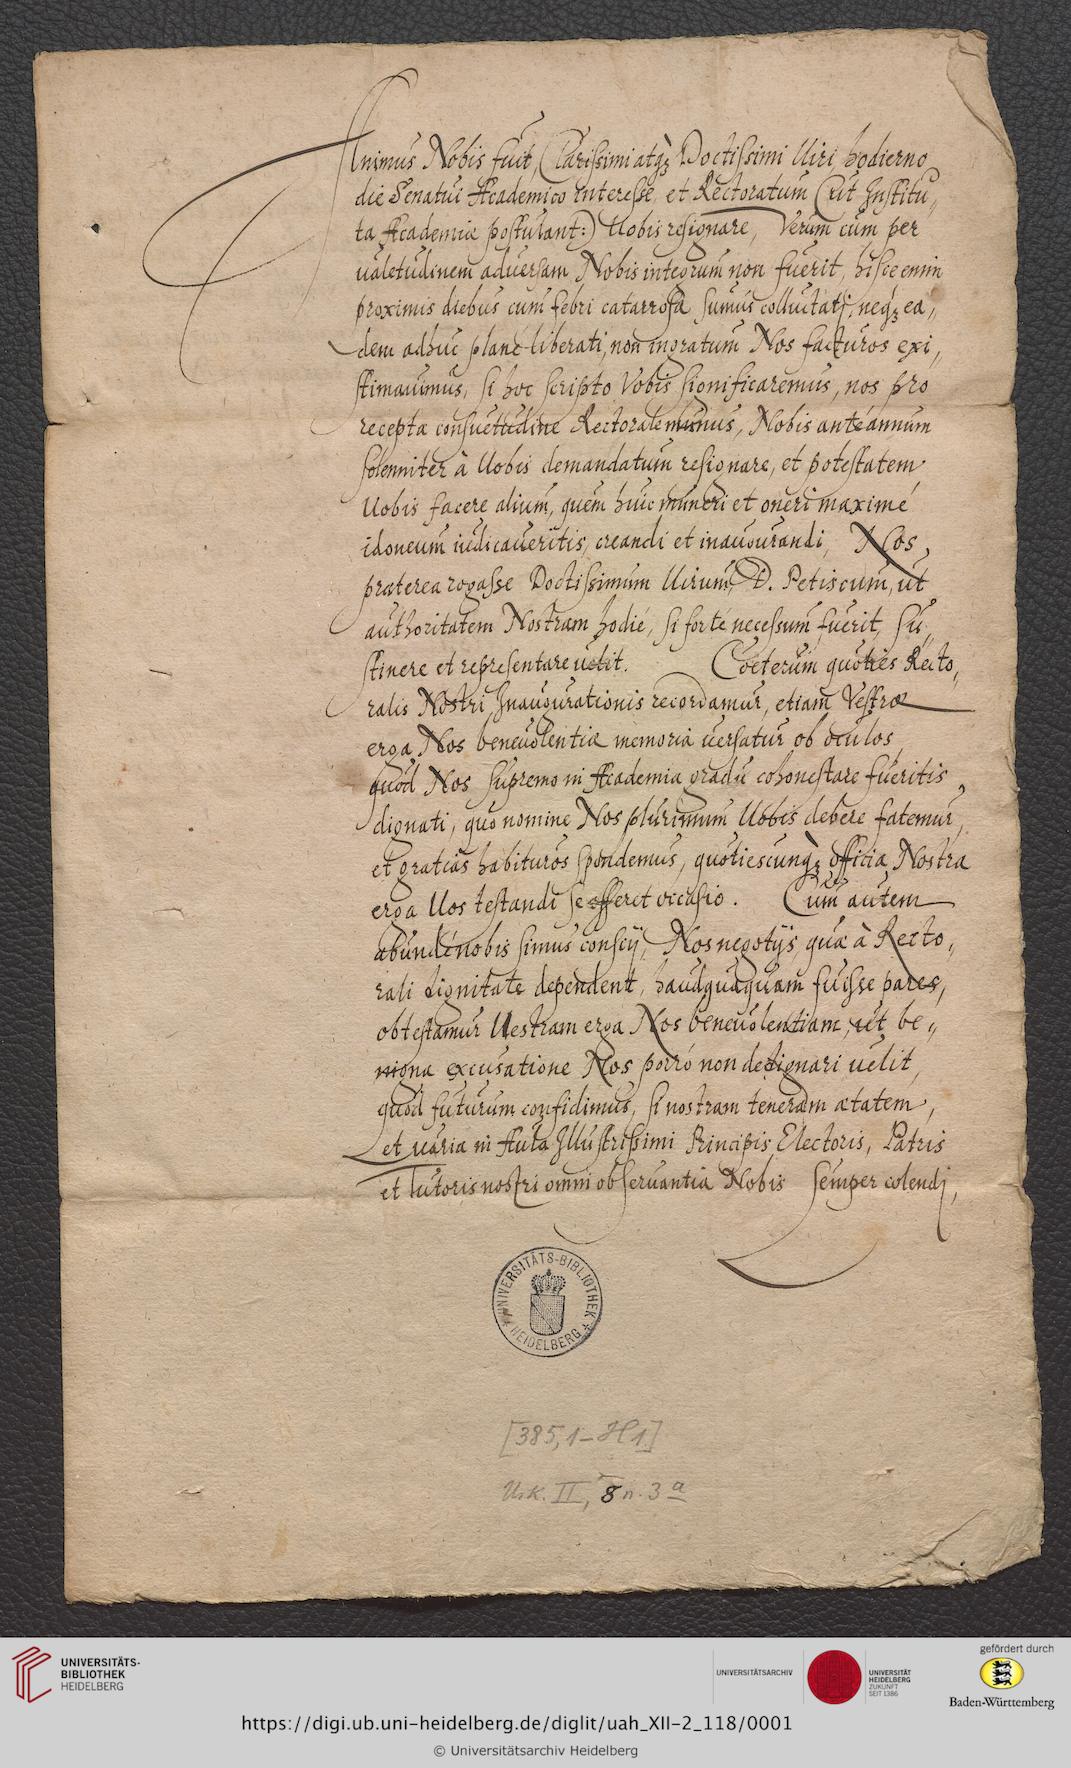 Animus Nobis fuit, Clarissimi atq₃ Doctissimi Viri, hodierno
die Senatui Academico interesse, et Rectoratum (:ut Institu„
ta Academiæ postulant:) Vobis resignare, Verùm cùm per
valetudinem adversam Nobis integrum non fuerit, hisce enim
proximis diebus cum febri catarrosa sumus colluctati, neq₃ ea„
dem adhuc planè liberati, non ingratum Nos facturos exi„
stimavimus, si hoc scripto Vobis significaremus, nos pro
recepta consuetudine Rectorale munus, Nobis ante annum
solenniter à Vobis demandatum resignare, et potestatem
Vobis facere alium, quem huic muneri et oneri maximè
idoneum iudicaveritis, creandi et inaugurandi, Nos
præterea rogasse Doctissimum Virum, D. Petiscum, ut
authoritatem Nostram hodiè, si fortè necessum fuerit, su„
stinere et repræsentare velit. Cœterùm quoties Recto„
ralis Nostri Inaugurationis recordamur, etiam Vestræ
erga Nos benevolentiæ memoria versatur ob oculos,
quòd Nos supremo in Academia gradu cohonestare fueritis
dignati, quo nomine Nos plurimum Vobis debere fatemur,
et gratias habituros spondemus, quotiescunq₃ officia Nostra
erga Vos testandi se offeret occasio. Cùm autem
abundè nobis simus conscij, Nos negotijs, quæ à Recto„
rali dignitate dependent, haudquaquam fuisse pares,
obtestamur Vestram erga Nos benevolentiam, ut be„
nigna excusatione Nos porrò non dedignari velit,
quòd futurum confidimus, si nostram teneram ætatem,
et varia in Aula Illustrissimi Principis Electoris, Patris
et tutoris nostri omni observantia Nobis semper colendj,
UNIVERSITÄTS-BIBLIOTHEK
HEIDELBERG
[385,1-H1]
Urk. II, 8 n. 3 a
UNIVERSITÄTS-
BIBLIOTHEK
HEIDELBERG
UNIVERSITÄTSARCHIV
UNIVERSITÄT
HEIDELBERG
ZUKUNFT
SEIT 1386
gefördert durch
Baden-Württemberg
https://digi.ub.uni-heidelberg.de/diglit/uah_XII-2_118/0001
© Universitätsarchiv Heidelberg